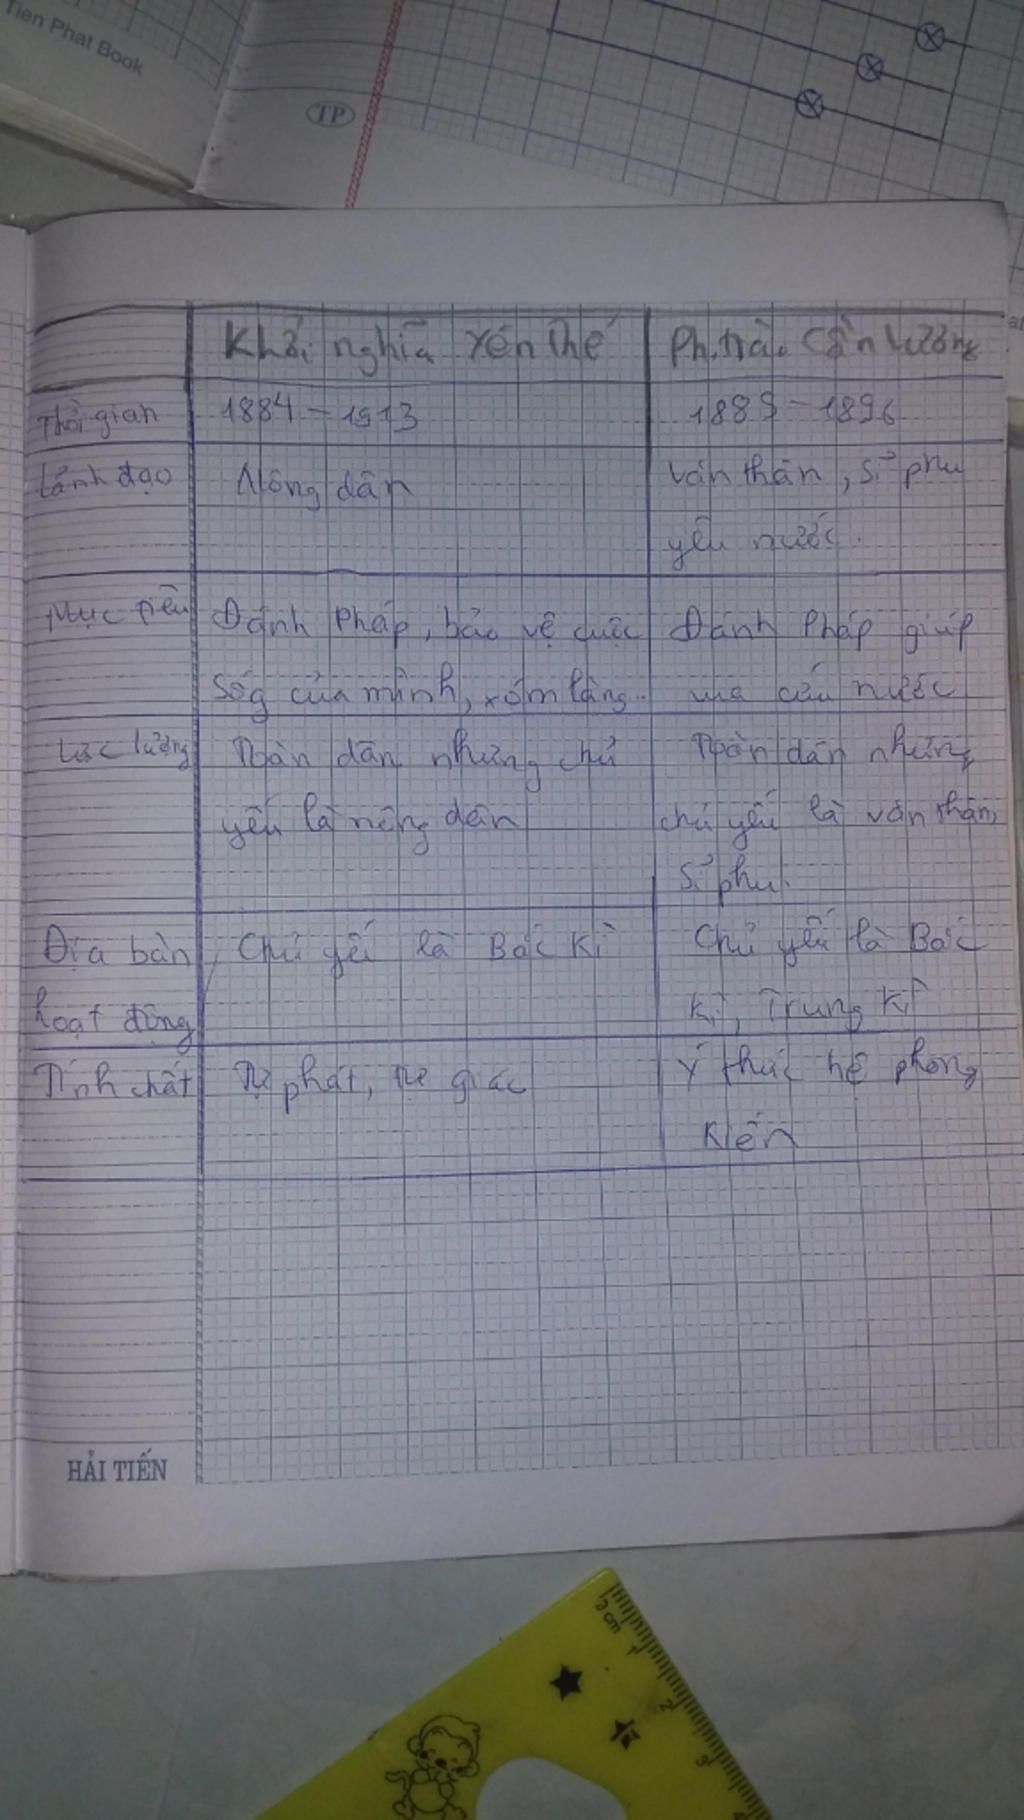 Tien Phat Book
TP
Khởi nghĩa Yên Thế
Ph.trào Cần Vương
Thời gian
1884 - 1913
1885 - 1896
Lãnh đạo
Nông dân
Văn thân, sĩ phu
yêu nước.
Mục tiêu
Đánh Pháp, bảo vệ cuộc
sốg của mình, xóm làng..
Đánh Pháp giúp
vua cứu nước
Lực lượng
Toàn dân nhưng chủ
yếu là nông dân
Toàn dân nhưng
chủ yếu là văn thân,
sĩ phu.
Địa bàn
hoạt động
Chủ yếu là Bắc Kì
Chủ yếu là Bắc
Kì, Trung Kì
Tính chất
Tự phát, tự giác
Ý thức hệ phong
kiến
HẢI TIẾN
0 cm
1
2
3
4